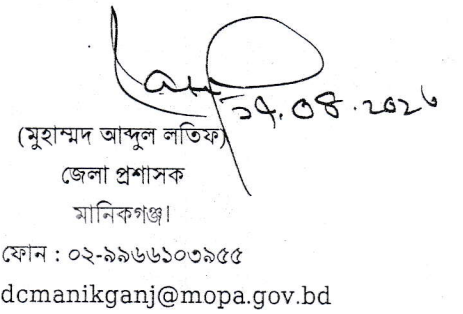 (মুহাম্মদ আব্দুল লতিফ)
জেলা প্রশাসক
মানিকগঞ্জ।
ফোন : ০২-৯৯৬৬১০৩৯৫৫
dcmanikganj@mopa.gov.bd